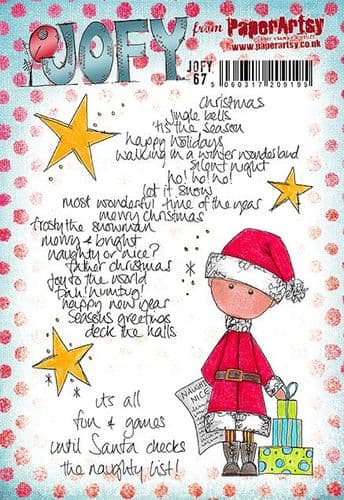 JOFY from PaperArtsy
www.paperartsy.co.uk
JOFY
67
060317209195
christmas
jingle bells
'tis the season
happy holidays
walking in a winter wonderland
silent night
ho! ho! ho!
let it snow
most wonderful time of the year
merry christmas
frosty the snowman
merry & bright
naughty or nice?
father christmas
joy to the world
bah! humbug!
happy new year
seasons greetings
deck the halls
NAUGHTY
NICE
it's all
fun & games
until Santa checks
the naughty list!